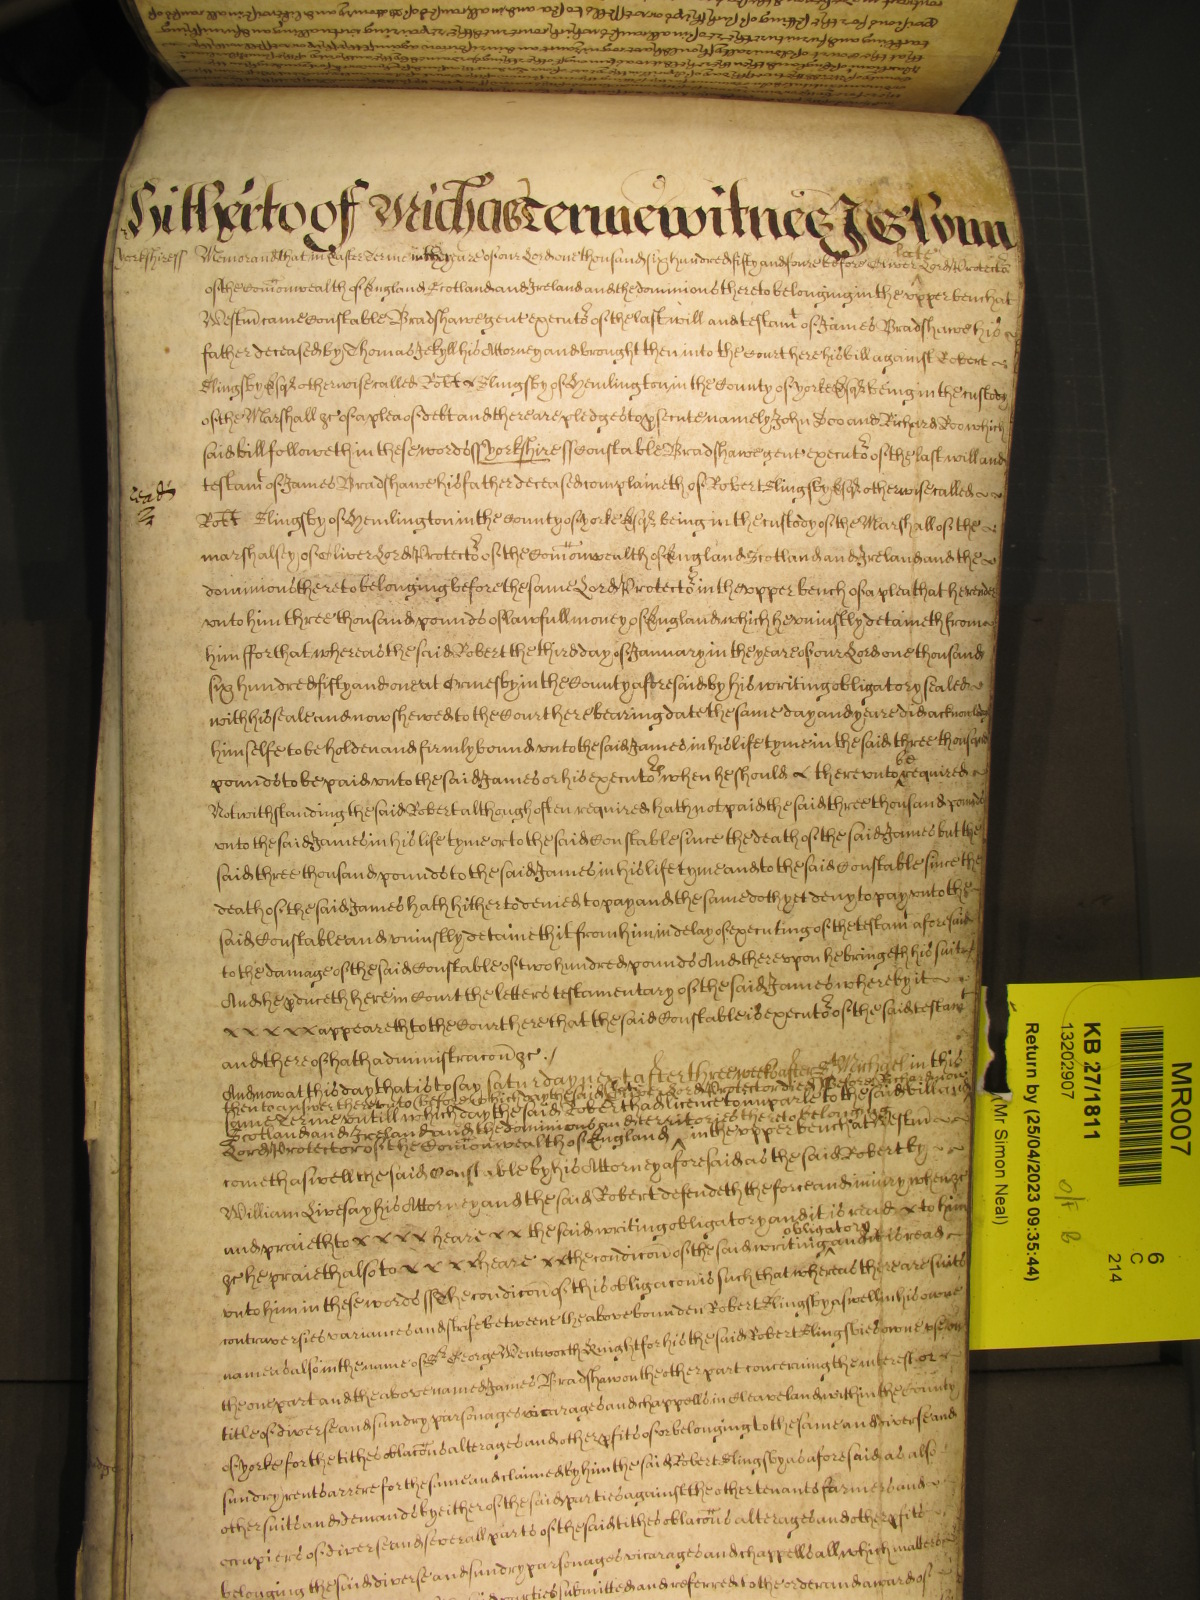 Hitherto of Michās Terme witnes
Yorkshire ss Memorand that in Easter Terme in the yeare of our Lord one thousand six hundred fifty and foure before Oliver late Lord Protector
of the Com̄onwealth of England Scotland and Ireland and the dominions thereto belonging in the vpper bench at
Westm̄ came Constable Bradshawe gent executor of the last will and testamt of James Bradshawe his
father deceased by Thomas Jekyll his Attorney and brought then into the Court here his bill against Robert
Slingsby Esqr otherwise called Robt Slingsby of Hemlington in the County of yorke Esqr being in the custody
of the Marshall &c of a plea of debt and there are pledges to p̱secute namely John Doo and Richard Roo which
said bill followeth in these words ss yorkshire ss Constable Bradshawe gent executor of the last will and
testamt of James Bradshawe his father deceased complaineth of Robert Slingsby Esqr otherwise called
Robt Slingsby of Hemlington in the County of yorke Esqr being in the custody of the Marshall of the
marshalsey of Oliver Lord Protector of the Com̄onwealth of England Scotland and Ireland and the
dominions thereto belonging before the same Lord Protector in the vpper bench of a plea that he render
vnto him three thousand pounds of lawfull money of England which he vniustly detaineth from
him ffor that whereas the said Robert the third day of January in the yeare of our Lord one thousand
six hundred fifty and one at Ormesby in the County aforesaid by his writing obligatory sealed
with his seale and now shewed to the Court here bearing date the same day and yeare did acknowledge
himselfe to be holden and firmly bound vnto the said James in his life tyme in the said three thousand
pounds to be paid vnto the said James or his executors when he should therevnto be required
Notwithstanding the said Robert although often required hath not paid the said three thousand pounds
vnto the said James in his life tyme or to the said Constable since the death of the said James but the
said three thousand pounds to the said James in his life tyme and to the said Constable since the
death of the said James hath hitherto denied to pay and the same doth yet deny to pay vnto the
said Constable and vniustly detaineth it from him in delay of executing of the testamt aforesaid
to the damage of the said Constable of two hundred pounds And therevpon he bringeth his suite
And he p̱duceth here in Court the letters testamentary of the said James whereby it
x x x x x appeareth to the Court here that the said Constable is executor of the said testamt
and thereof hath administracōn &c ./
And now at this day that is to say saturday next after three weeks after St Michael in this
same Terme vntill which day the said Robert had licence to imparle to the said bill and
then to answer therevnto before which day the said Oliver Lord Protector died before Richard now
Lord Protector of the Com̄onwealth of England
Scotland and Ireland and the dominions and territories thereto belonging in the vpper bench at Westm̄
cometh aswell the said Constable by his Attorney aforesaid as the said Robert by
William Livesay his Attorney and the said Robert defendeth the force and iniury when &c
and praieth to x x x x heare x x the said writing obligatory and it is read x to him
&c he praieth also to x x x x heare x x the condicōn of the said writing obligatory and it is read
vnto him in these words ss The condicōn of this obligacōn is such that whereas there are suits
contraversies variances and strife betweene the above bounden Robert Slingsby aswell in his owne
name as also in the name of Sr George Wentworth Knight for his the said Robert Slingsbies owne vse on
the one part and the above named James Bradshaw on the other part concerning the interest or
title of diverse and sundry parsonages vicarages and chappells in Cleaveland within the County
of yorke for the tithes oblacōns alterages and other p̱fits of or belonging to the same and diverse and
sundry rents arrere for the same and claimed by him the said Robert Slingsby as aforesaid as also
other suits and demands by either of the said parties against the other tenants farmers and
occupiers of diverse and severall parts of the said tithes oblacōns alterages and other p̱fits
belonging the said diverse and sundry parsonages vicarages and chappells all which matters
parties submitted and referred to the order and award of
MR007
KB 27/1811
13202907
Return by (25/04/2023 09:35:44)
(Mr Simon Neal)
6
C
214